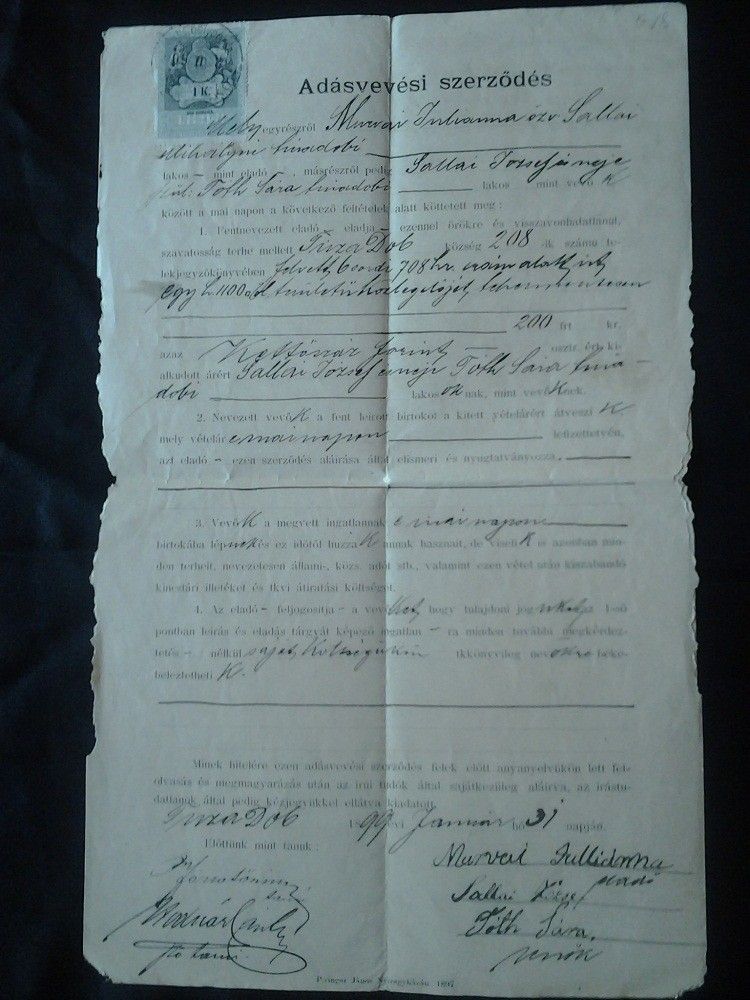 1 K.
Adásvevési szerződés
Mely egyrészről Murvai Julianna özv Sallai
Mihályné tiszadobi
lakos – mint eladó –, másrészről pedig Sallai József és neje
szül. Tóth Sára tiszadobi lakos mint vevő k
között a mai napon a következő feltételek alatt köttetett meg:
1. Fentnevezett eladó – eladja – ezennel örökre és visszavonhatatlanul,
szavatosság terhe mellett Tisza Dob község 208 -ik számu te-
lekjegyzőkönyvében felvett 708 hr. szám alatt irt
egy h. 1100 területű közlegelőjét tehermentesen
200 frt kr.
azaz Kettőszáz forint osztr. ért. ki-
alkudott árért Sallai József és neje Tóth Sára tisza-
dobi lakosoknak, mint vevőknek.
2. Nevezett vevők a fent leirott birtokot a kitett vételárért átveszik
mely vételár e mai napon lefizettetvén,
azt eladó – ezen szerződés aláirása által elismeri és nyugtatványozza.
3. Vevők a megvett ingatlannak e mai napon
birtokába lépnek és ez időtől huzzák annak hasznait, de viselik is azonban min-
den terheit, nevezetesen állami-, közs. adót stb., valamint ezen vétel után kiszabandó
kincstári illetéket és tkvi átiratási költséget.
4. Az eladó – feljogosítja – a vevőket, hogy tulajdoni joguk az 1-ső
pontban leírás és eladás tárgyát képező ingatlan – ra minden további megkérdez-
tetés – nélkül saját költségükön tkkönyvileg nevökre beke-
belezhetik.
Minek hitelére ezen adásvevési szerződés felek előtt anyanyelvükön lett fel-
olvasás és megmagyarázás után az irni tudók által sajátkezüleg aláirva, az irástu-
datlanok által pedig kézjegyükkel ellátva kiadatott.
Tisza Dob 1899 évi Január hó 31 napján.
Előttünk mint tanuk:
Murvai Jullianna
eladó
Sallai József
Tóth Sára
vevők
Piringer János Nyíregyházán 1897